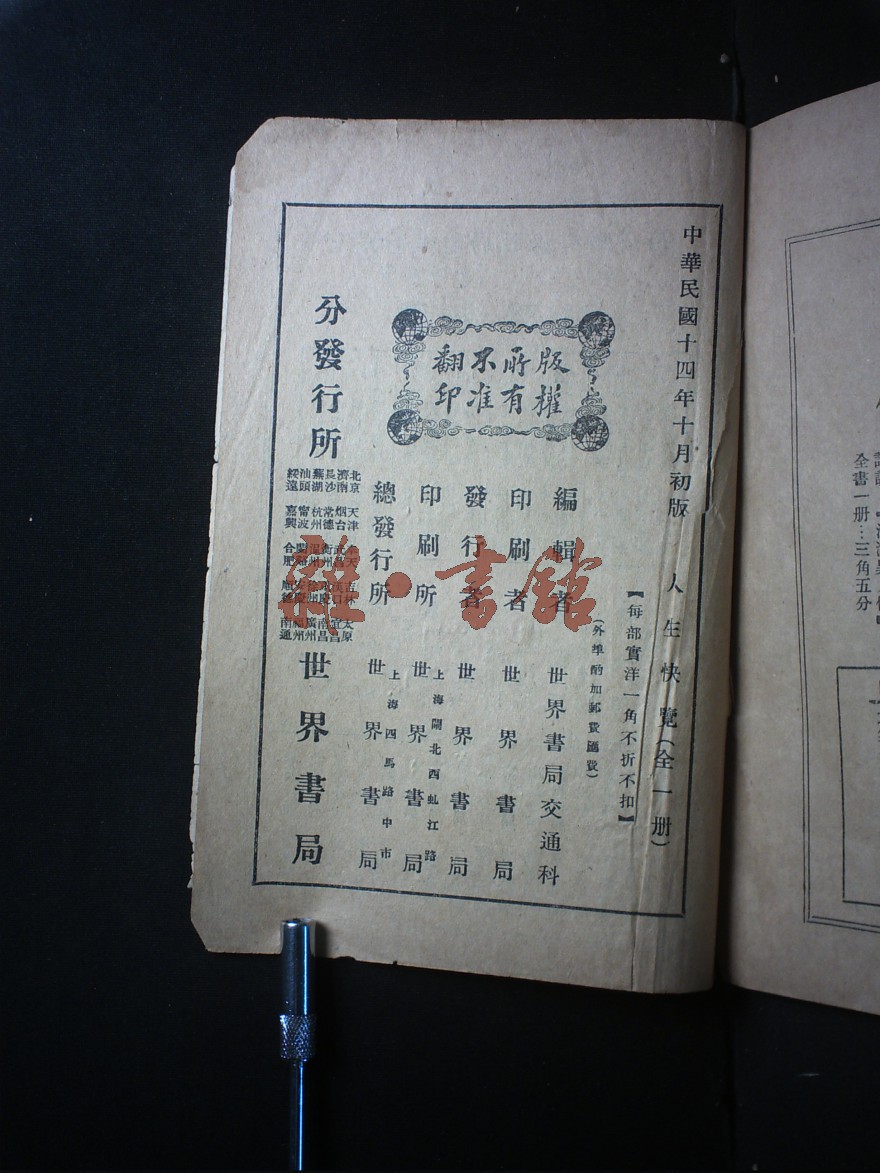 中華民國十四年十月初版
人生快覽(全一册)
【每部實洋一角不折不扣】
(外埠酌加郵費匯費)
版權
所有
不准
翻印
編輯者 世界書局交通科
印刷者 世界書局
發行者 世界書局
印刷所 上海閘北西虬江路
世界書局
總發行所 上海四馬路中市
世界書局
分發行所
北京 天津 奉天 吉林 太原
濟南 烟台
長沙 常德 衡州
蕪湖 杭州 溫州 徐州 廣州
汕頭 甯波 安慶 福州
綏遠 嘉興 合肥 南通
世界書局
雜·書館
全書一册…三角五分